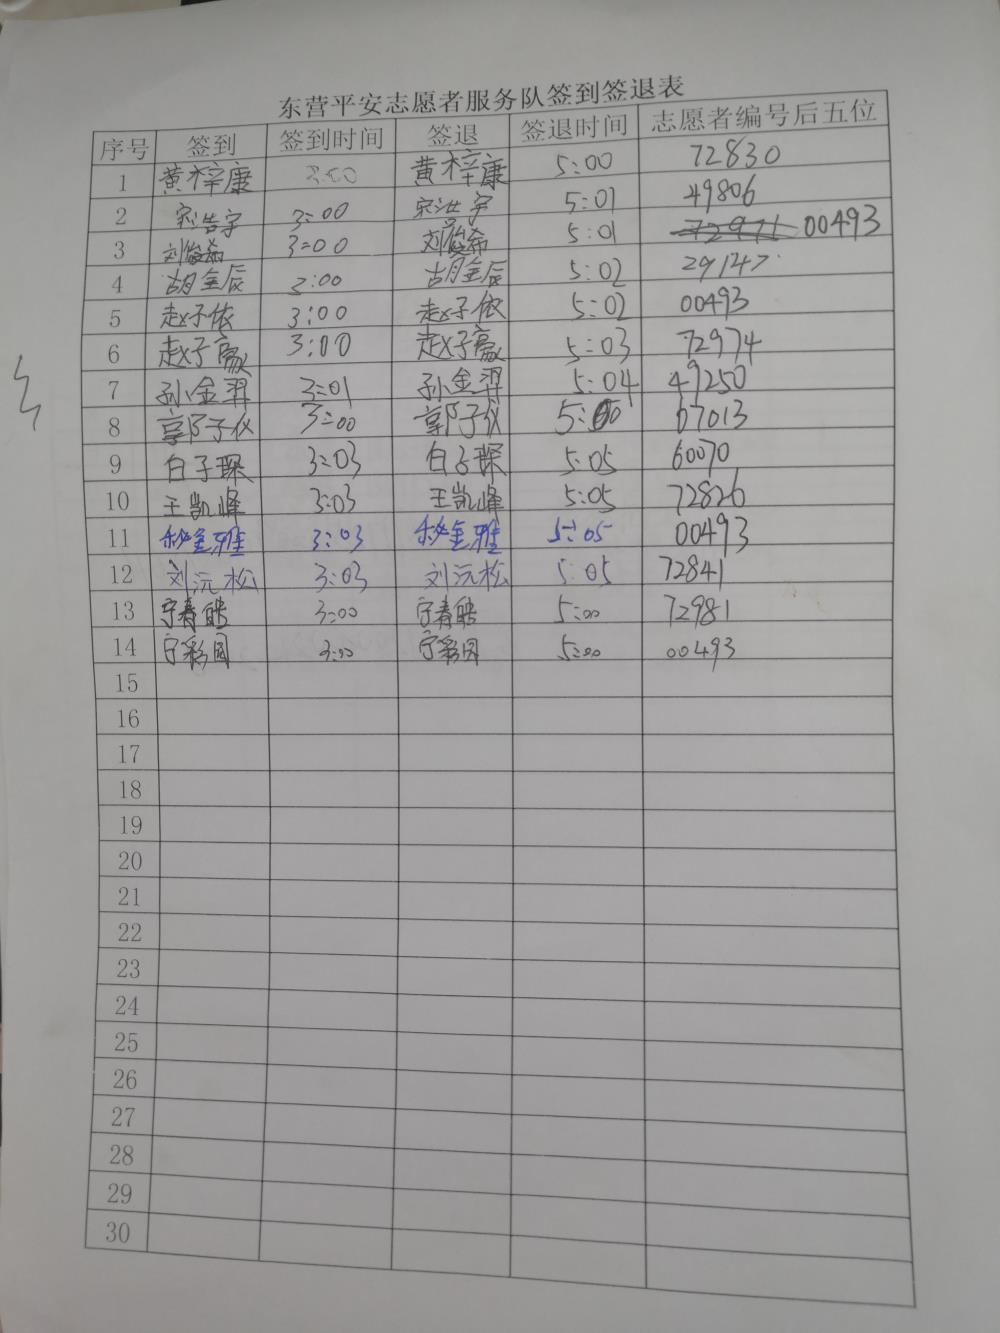 东营平安志愿者服务队签到签退表
序号 签到 签到时间 签退 签退时间 志愿者编号后五位
1 黄梓康 3:00 黄梓康 5:00 72830
2 宋浩宇 3:00 宋浩宇 5:01 49806
3 刘俊希 3:00 刘俊希 5:01 72971 00493
4 胡金辰 3:00 胡金辰 5:02 29147
5 赵子依 3:00 赵子依 5:02 00493
6 赵子赢 3:00 赵子赢 5:03 72974
7 孙金羿 3:01 孙金羿 5:04 49250
8 郭子仪 3:00 郭子仪 07013
9 白子琛 3:03 白子琛 5:05 60070
10 王凯峰 3:03 王凯峰 5:05 72826
11 3:03 5:05 00493
12 刘沅松 3:03 刘沅松 5:05 72841
13 3:00 5:00 72981
14 宁彩园 3:00 宁彩园 5:00 00493
15
16
17
18
19
20
21
22
23
24
25
26
27
28
29
30